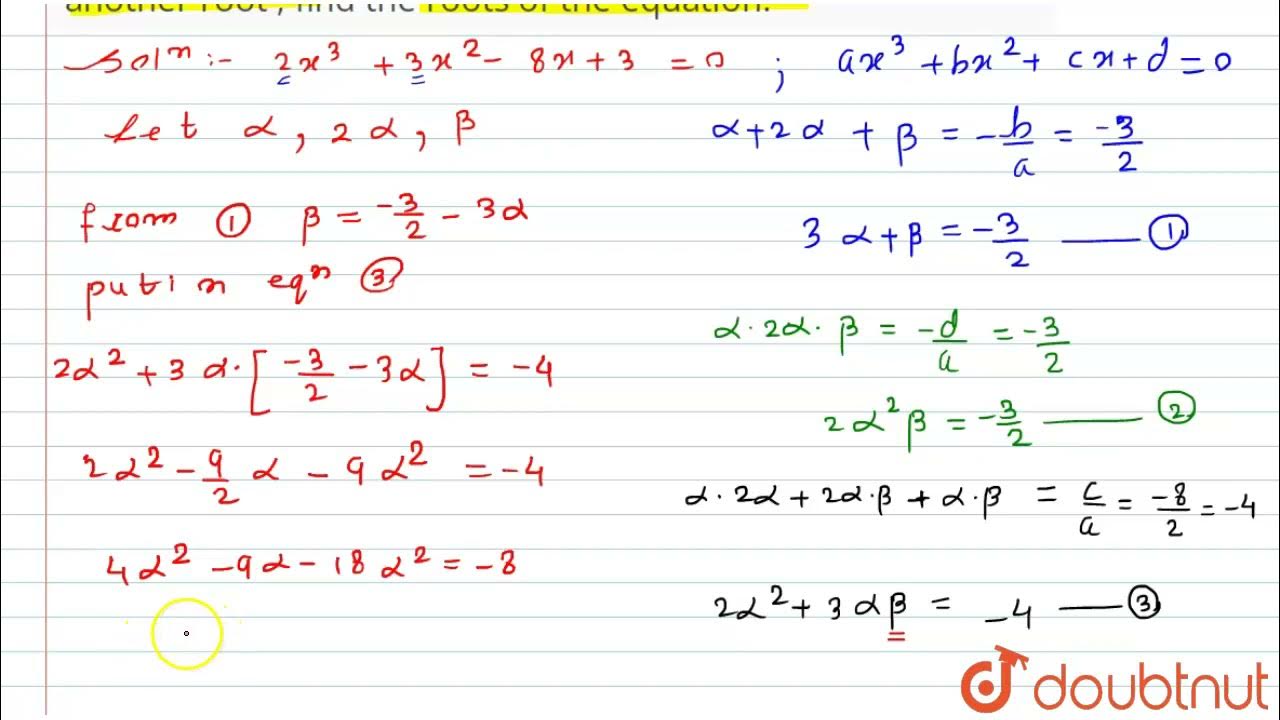 another root, find the roots of the equation.
Solⁿ :- 2x³ + 3x² - 8x + 3 = 0 ; ax³ + bx² + cx + d = 0
Let α, 2α, β
α + 2α + β = -b/a = -3/2
from ① β = -3/2 - 3α
3α + β = -3/2 —— ①
put in eqⁿ ③
α · 2α · β = -d/a = -3/2
2α² + 3α · [-3/2 - 3α] = -4
2α²β = -3/2 —— ②
2α² - 9/2 α - 9α² = -4
α · 2α + 2α · β + α · β = c/a = -8/2 = -4
4α² - 9α - 18α² = -8
2α² + 3αβ = -4 —— ③
doubtnut